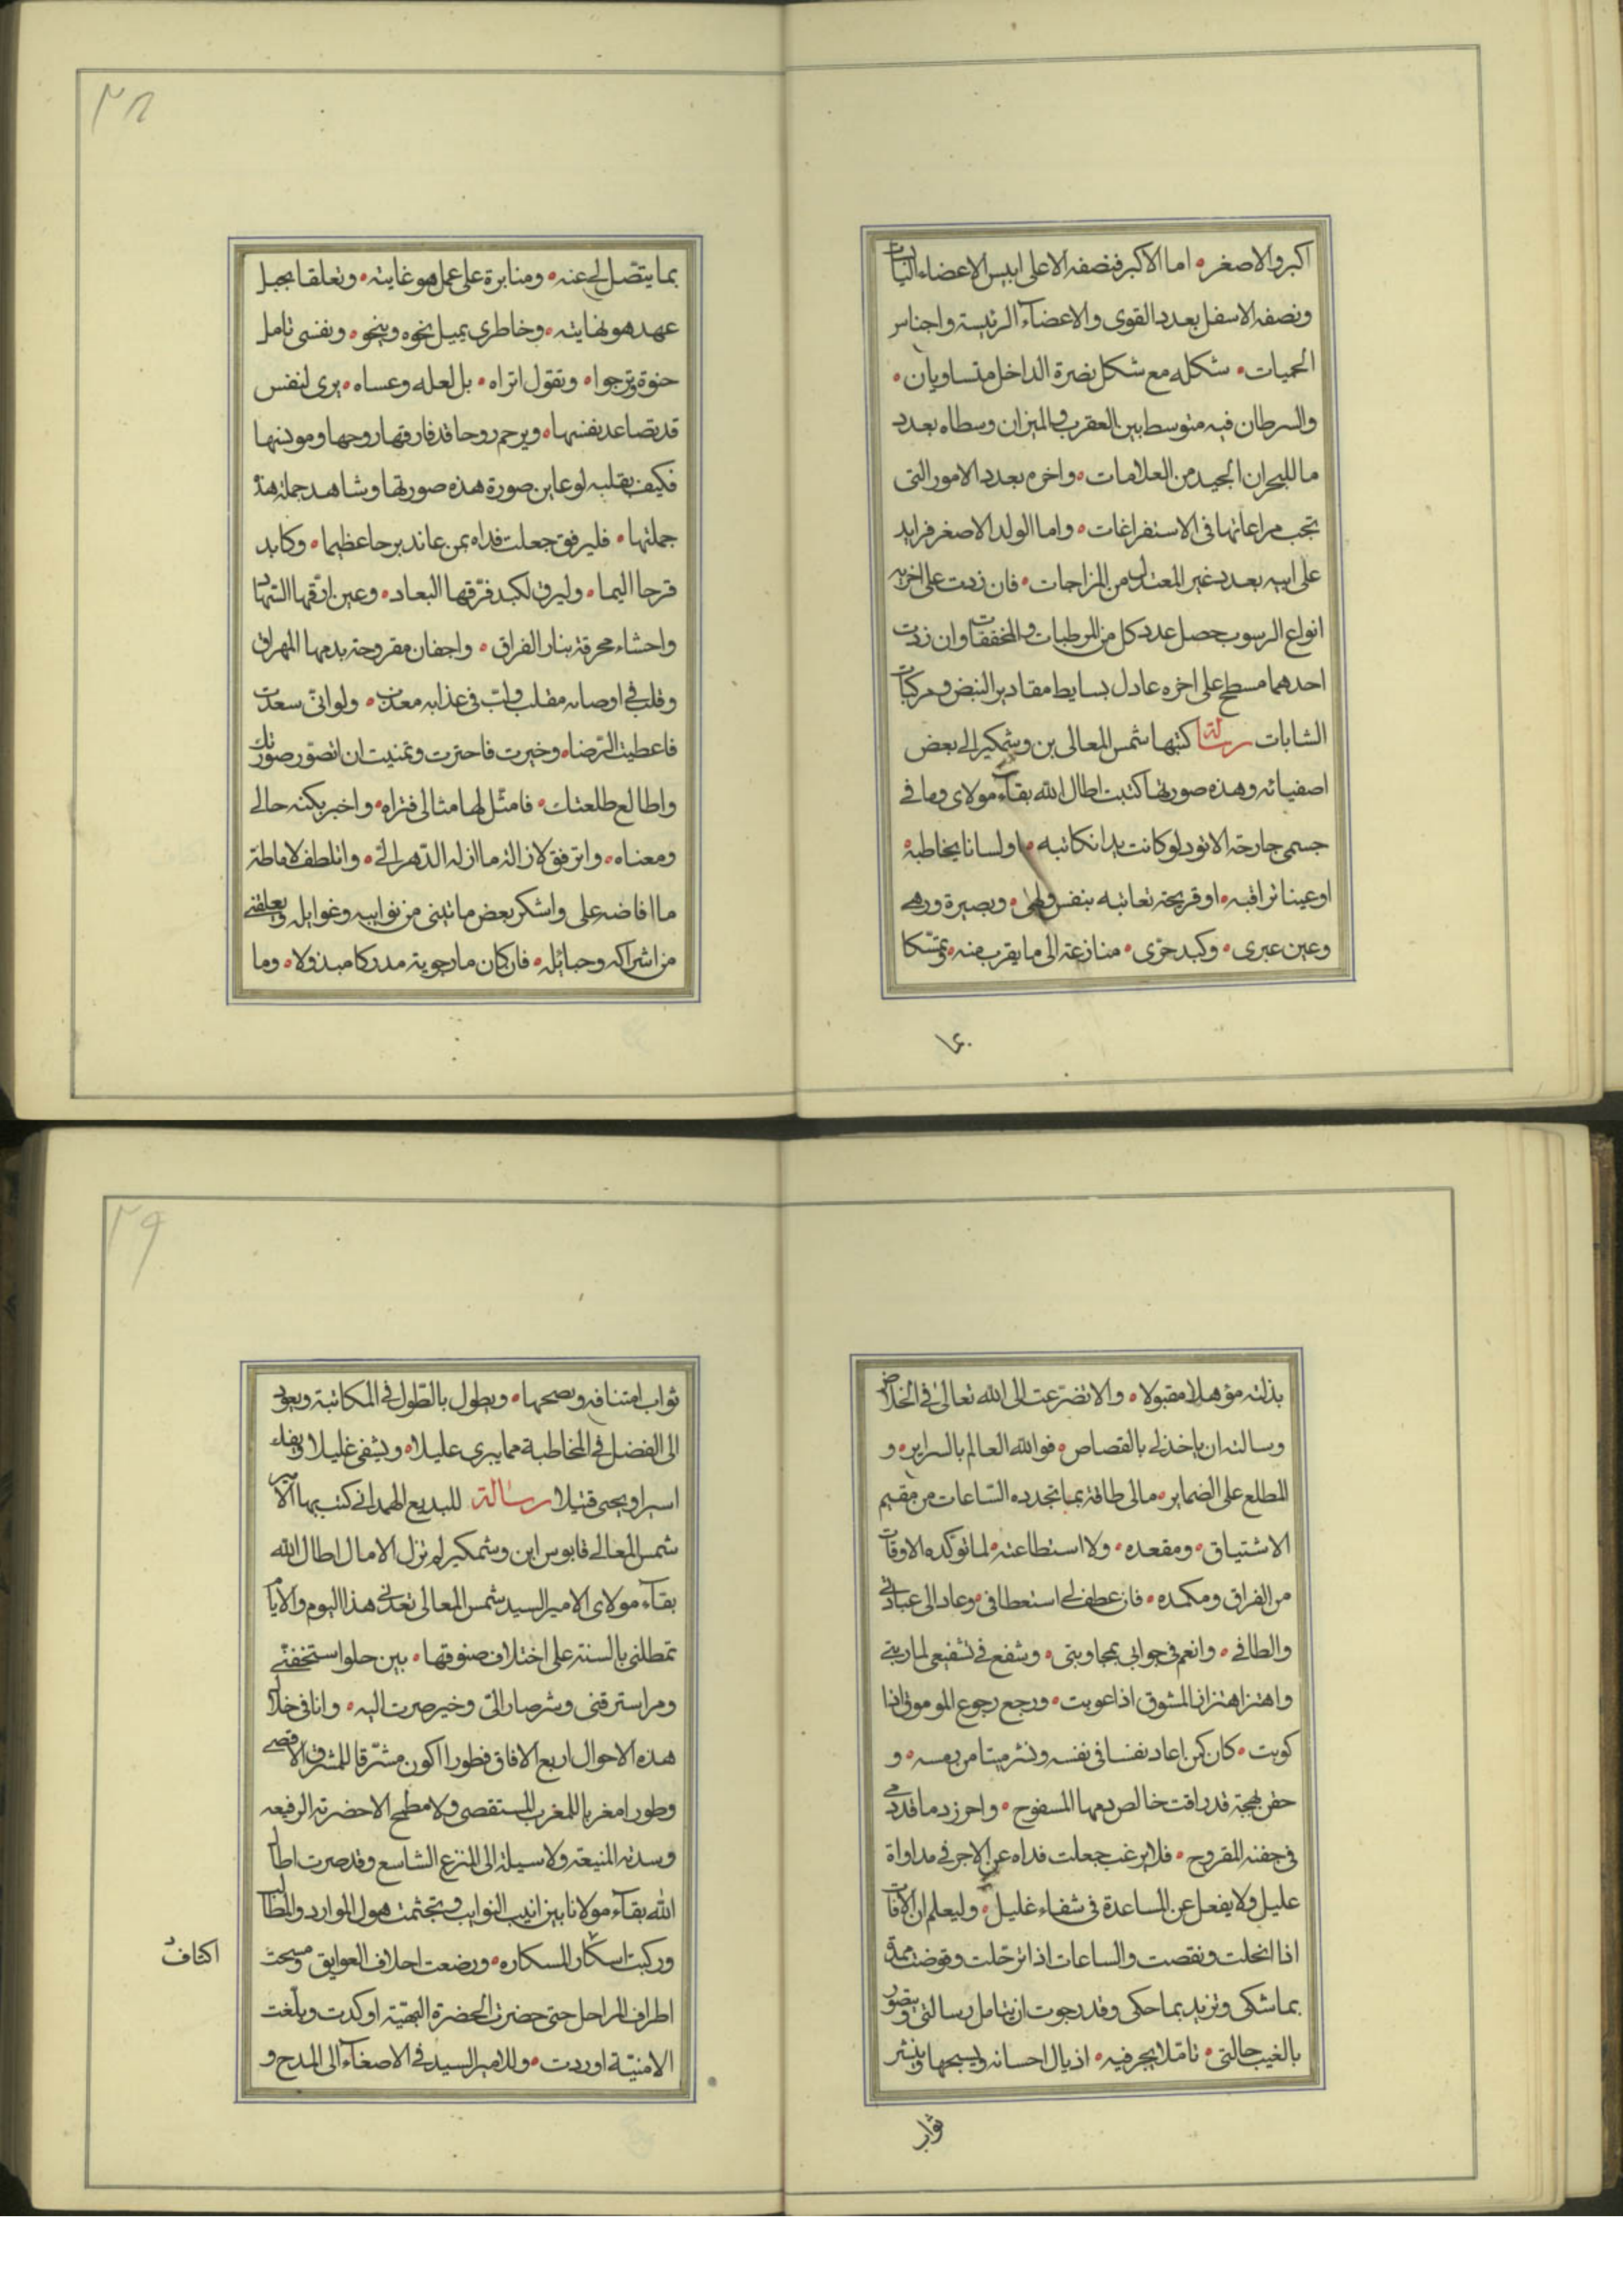 اكبر والاصغر • اما الاكبر فنصفه الاعلى ابيس الاعضاء
ونصفه الاسفل بعدد القوى والاعضاء الرئيسة واجناس
الحميات • شكله مع شكل نصرة الداخل متساويان •
والسرطان فيه متوسط بين العقرب والميزان وسطاه بعدد
ما للبحران الجيد من العلامات • واخره بعدد الامور التى
تجب مراعاتها فى الاستفراغات • واما الولد الاصغر فزايد
على ابيه بعدد غير المعتدل من المزاجات • فان زدت على اخريه
انواع الرسوب حصل عدد كل من المرطبات والمخففات وان زدت
احدهما مسطح على اخره عادل بسايط مقادير النبض ومركبات
الشابات رسالة كتبها شمس المعالى بن وشمكير الى بعض
اصفيائه وهذه صورتها كتبت اطال الله بقاء مولاى وما فى
جسمى جارحة الا تود لو كانت يدا تكاتبه • او لسانا يخاطبه
او عينا تراقبه • او قريحة تعاتبه بنفس ولهى • وبصيرة ورهى
وعين عبرى • وكبد حرّى • منازعة الى ما يقرب منه • وتمسّكا
بما
٢٨
بما يتّصل الى عنه • ومثابرة على عمل هو غايته • وتعلقا بحبل
عهد هو نهايته • وخاطرى يميل نحوه وينحو • ونفسى تامل
حنوه وترجوا • وتقول اتراه • بل لعله وعساه • يرى لنفس
قد تصاعد نفسها • ويرحم روحا قد فارقها روحها ومونسها
فكيف بقلبه لو عاين صورة هذه صورتها وشاهد جملة هذه
جملتها • فليرفق جعلت فداه بمن عاند برحا عظيما • وكابد
قرحا اليما • وليرق لكبد فرّقها البعاد • وعين ارّقها السّهاد
واحشاء محرقة بنار الفراق • واجفان مقروحة بدمها المهراق
وقلب فى اوصابه مقلب ولبّ فى عذابه معذب • ولو انّى سعدت
فاعطيت الرّضاه وخيرت فاخترت وتمنيت ان اتصوّر صورتك
واطالع طلعتك • فامثّل لها مثالى فتراه • واخبر بكنه حالى
ومعناه • واترفق لازالة ما ازله الدّهر الىّ • واتلطف لاماطة
ما افاضه على واشكر بعض ما نبنى من نوايبه وغوايله ويعلقنى
من اشراكه وحبائله • فان كان ما رجوته مدركا مبذولا • وما
بذلته مؤهلا مقبولا • والا تضرّعت الى الله تعالى فى الخلاص
وسالته ان ياخذ لى بالقصاص • فوالله العالم بالسراير • و
المطلع على الضماير • مالى طاقة بما تجدده السّاعات من مقيم
الاشتياق • ومقعده • ولا استطاعته لما توكّده الاوقات
من الفراق ومكمده • فان عطف لى استعطافى • وعاد الى عباداتى
والطافى • وانعم فى جوابى بمجاوبتى • وشفع فى تشفيعى لماربتى
واهتز اهتزاز المشوق اذا عوبت • ورجع رجوع الموموق اذا
كويت • كان كمن اعاد نفسا فى نفسه ونشر ميتا من رمسه • و
حقن مهجة قد راقت خالص دمها المسفوح • واحرز دما قد دمى
فى جفنه المقروح • فلا يرغب جعلت فداه عن الاجر فى مداواة
عليل ولا يفعل عن المساعدة فى شفاء غليل • وليعلم ان الآفات
اذا انحلت ونقصت والساعات اذا ترحّلت وقوضت
بما شكى وتزيد بما حكى وقد رجوت ان يتامل رسالتى ويتصوّر
بالغيب حالتى • تامّلا يجر فيه • اذيال احسانه ويسحبها وينشر
ثواب
٢٩
ثواب امتنافه وبصحبها • ويطول بالطّول فى المكاتبة ويعود
الى الفضل فى المخاطبة مما يبرى عليلا • ويشفى غليلا ويفك
اسيرا ويحيى قتيلا رسالة للبديع الهمدانى كتب بها الى الامير
شمس المعالى قابوس ابن وشمكير لم تزل الامال اطال الله
بقاء مولاى الامير السيد شمس المعالى تعدنى هذا اليوم والايام
تمطلنى بالسنة على اختلاف صنوفها • بين حلو استخفنى
ومر استرقنى وشر صار الىّ وخير صرت اليه • وانا فى خلال
هذه الاحوال اربع الافاق فطورا اكون مشرّقا للمشرق الاقصى
وطورا مغربا للمغرب المستقصى ولا مطمح الا حضرته الرفيعه
وسدته المنيعة ولا وسيلة الى المنزع الشاسع وقد صرت اطال
الله بقاء مولانا بين انيب النوايب وتجشمت هول الموارد
وركبت اكناف المكاره • ورضعت اخلاف العوايق ومسحت
اكناف
اطراف المراحل حتى حضرت الحضرة البهيّة او كدت وبلّغت
الامنيّة او زدت • وللامير السيد فى الاصغاء الى المدح و